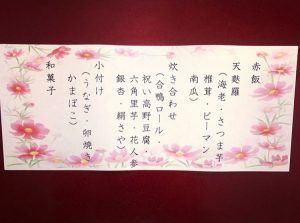 赤飯
天麩羅
(海老・さつま芋
椎茸・ピーマン
南瓜)
炊き合わせ
(合鴨ロール・
祝い高野豆腐・
六角里芋・花人参
銀杏・絹さや)
小付け
(うなぎ・卵焼き
かまぼこ)
和菓子